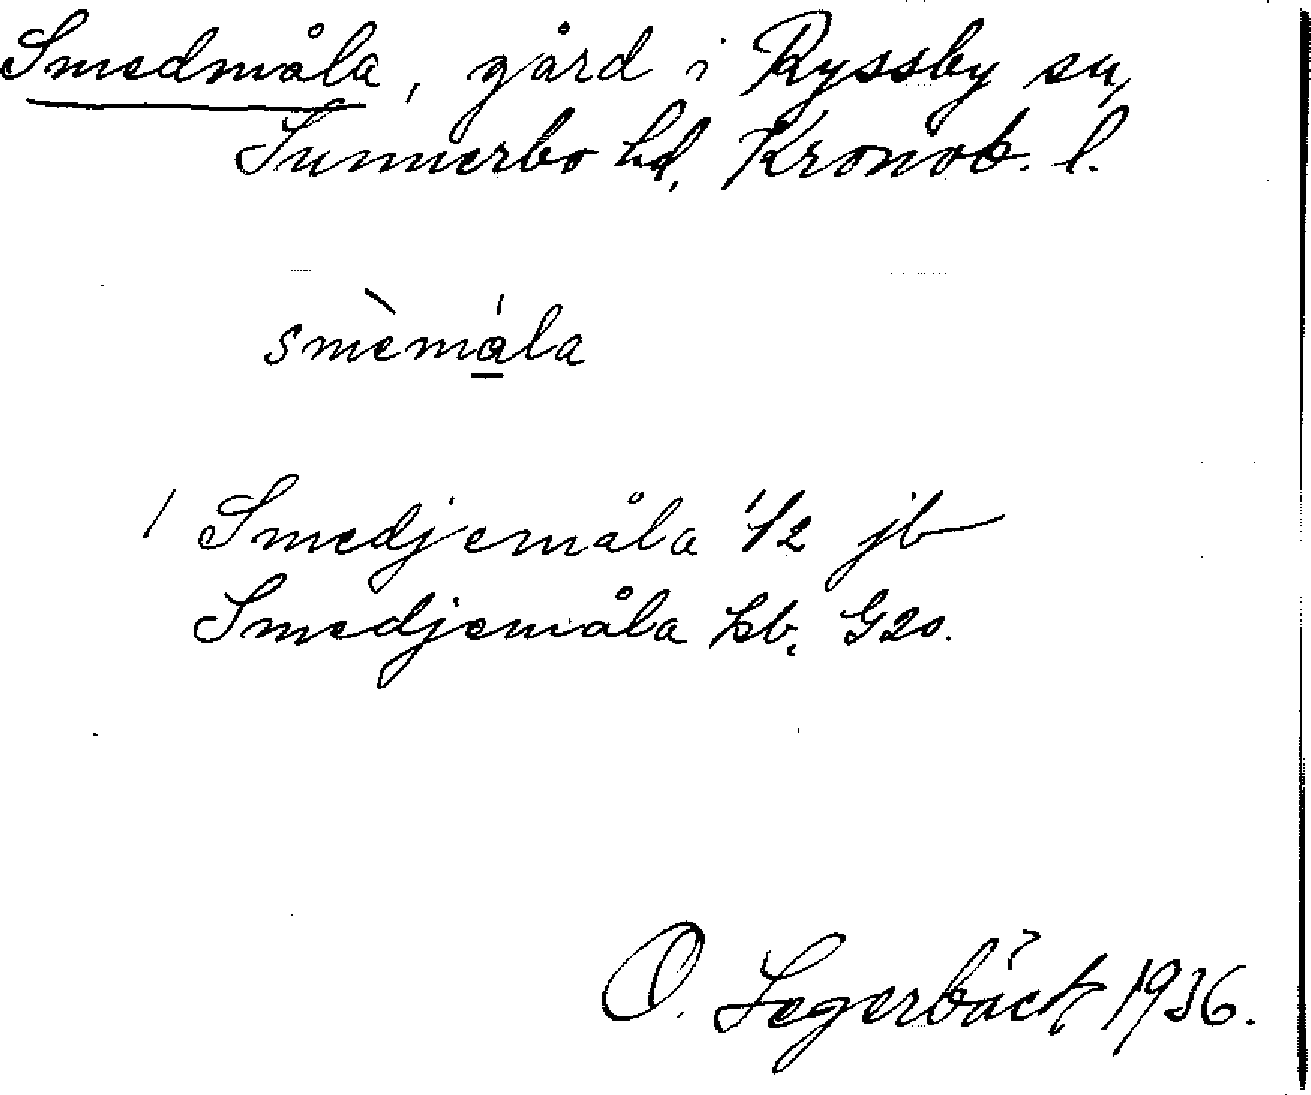 Smedmåla, gård i Ryssby sn,
Sunnerbo hd, Kronob. l.
smèmåla
1 Smedjemåla 1/2 jb
Smedjemåla hb. G20.
O. Segerbäck 1936.